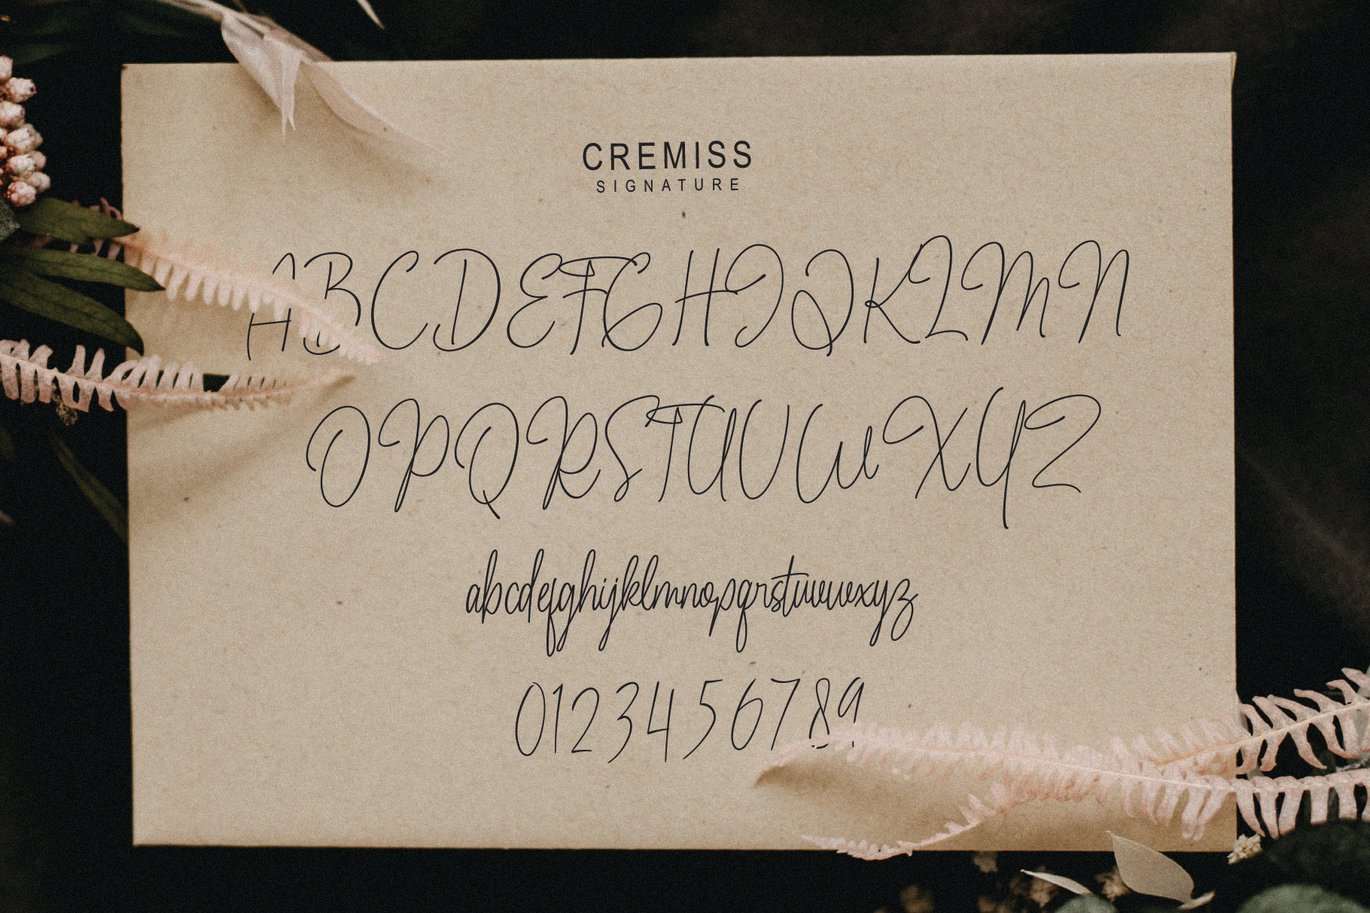 CREMISS
SIGNATURE
ABCDEFGHIJKLMN
OPQRSTUVWXYZ
abcdefghijklmnopqrstuvwxyz
0123456789